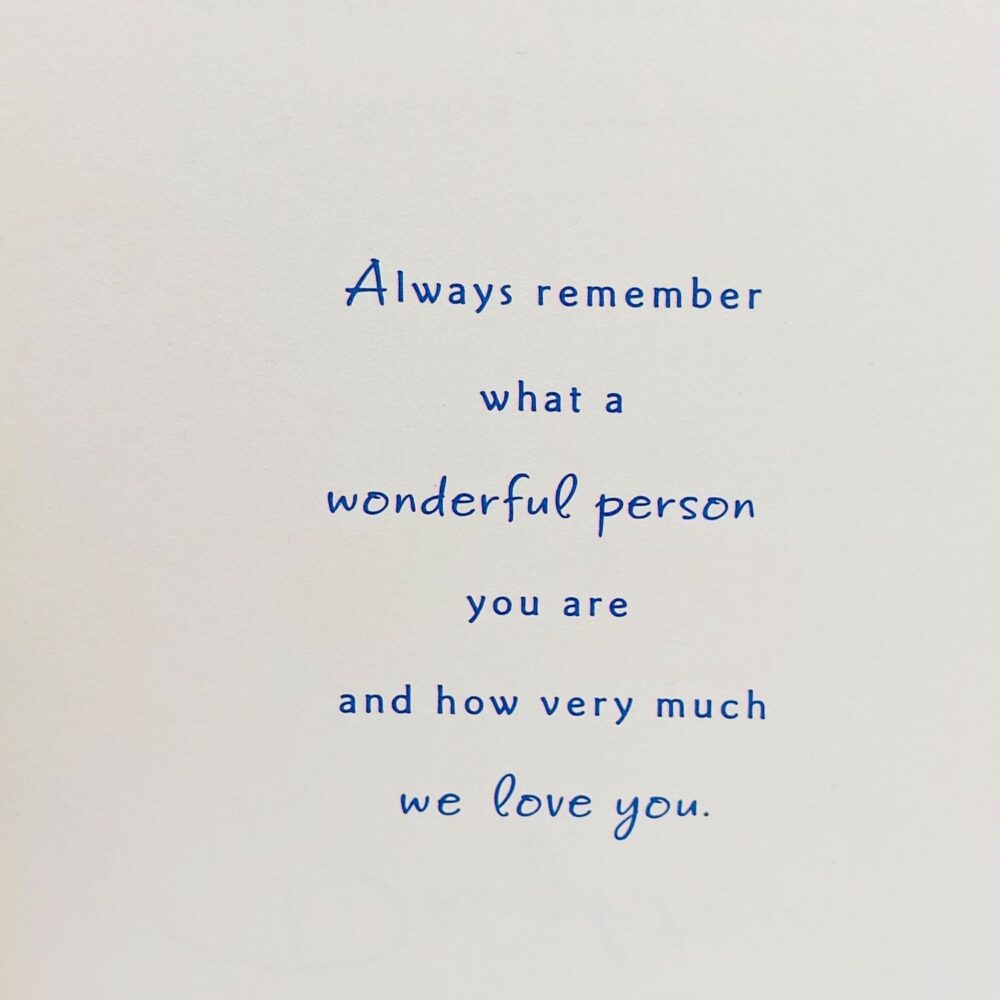 Always remember
what a
wonderful person
you are
and how very much
we love you.